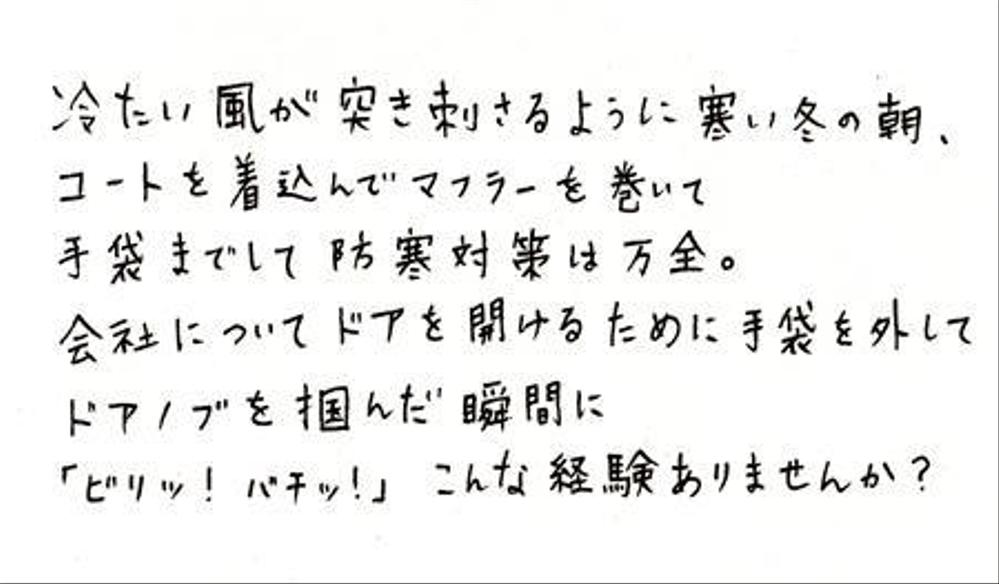 冷たい風が突き刺さるように寒い冬の朝、
コートを着込んでマフラーを巻いて
手袋までして防寒対策は万全。
会社についてドアを開けるために手袋を外して
ドアノブを掴んだ瞬間に
「ビリッ！バチッ！」こんな経験ありませんか？